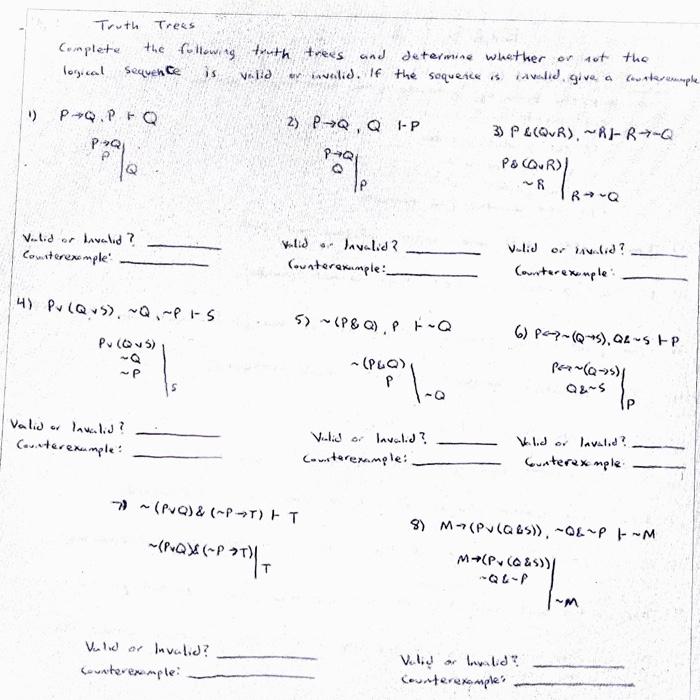 Truth Trees
Complete the following truth trees and determine whether or not the
logical sequence is valid or invalid. If the sequence is invalid, give a counterexample
1) P→Q, P ⊢ Q
P→Q
P
Q
Valid or Invalid?
Counterexample:
2) P→Q, Q ⊢P
P→Q
Q
P
Valid or Invalid?
Counterexample:
3) P&(QvR), ~R⊢ R→~Q
P&(QvR)
~R
R→~Q
Valid or invalid?
Counterexample:
4) Pv(QvS), ~Q, ~P ⊢ S
Pv(QvS)
~Q
~P
S
Valid or Invalid?
Counterexample:
5) ~(P&Q), P ⊢~Q
~(P&Q)
P
~Q
Valid or Invalid?
Counterexample:
6) P↔~(Q→S), Q&~S ⊢P
P↔~(Q→S)
Q&~S
P
Valid or Invalid?
Counterexample:
7) ~(PvQ)&(~P→T) ⊢ T
~(PvQ)&(~P→T)
T
Valid or Invalid?
Counterexample:
8) M→(Pv(Q&S)), ~Q&~P ⊢ ~M
M→(Pv(Q&S))
~Q&~P
~M
Valid or Invalid?
Counterexample: